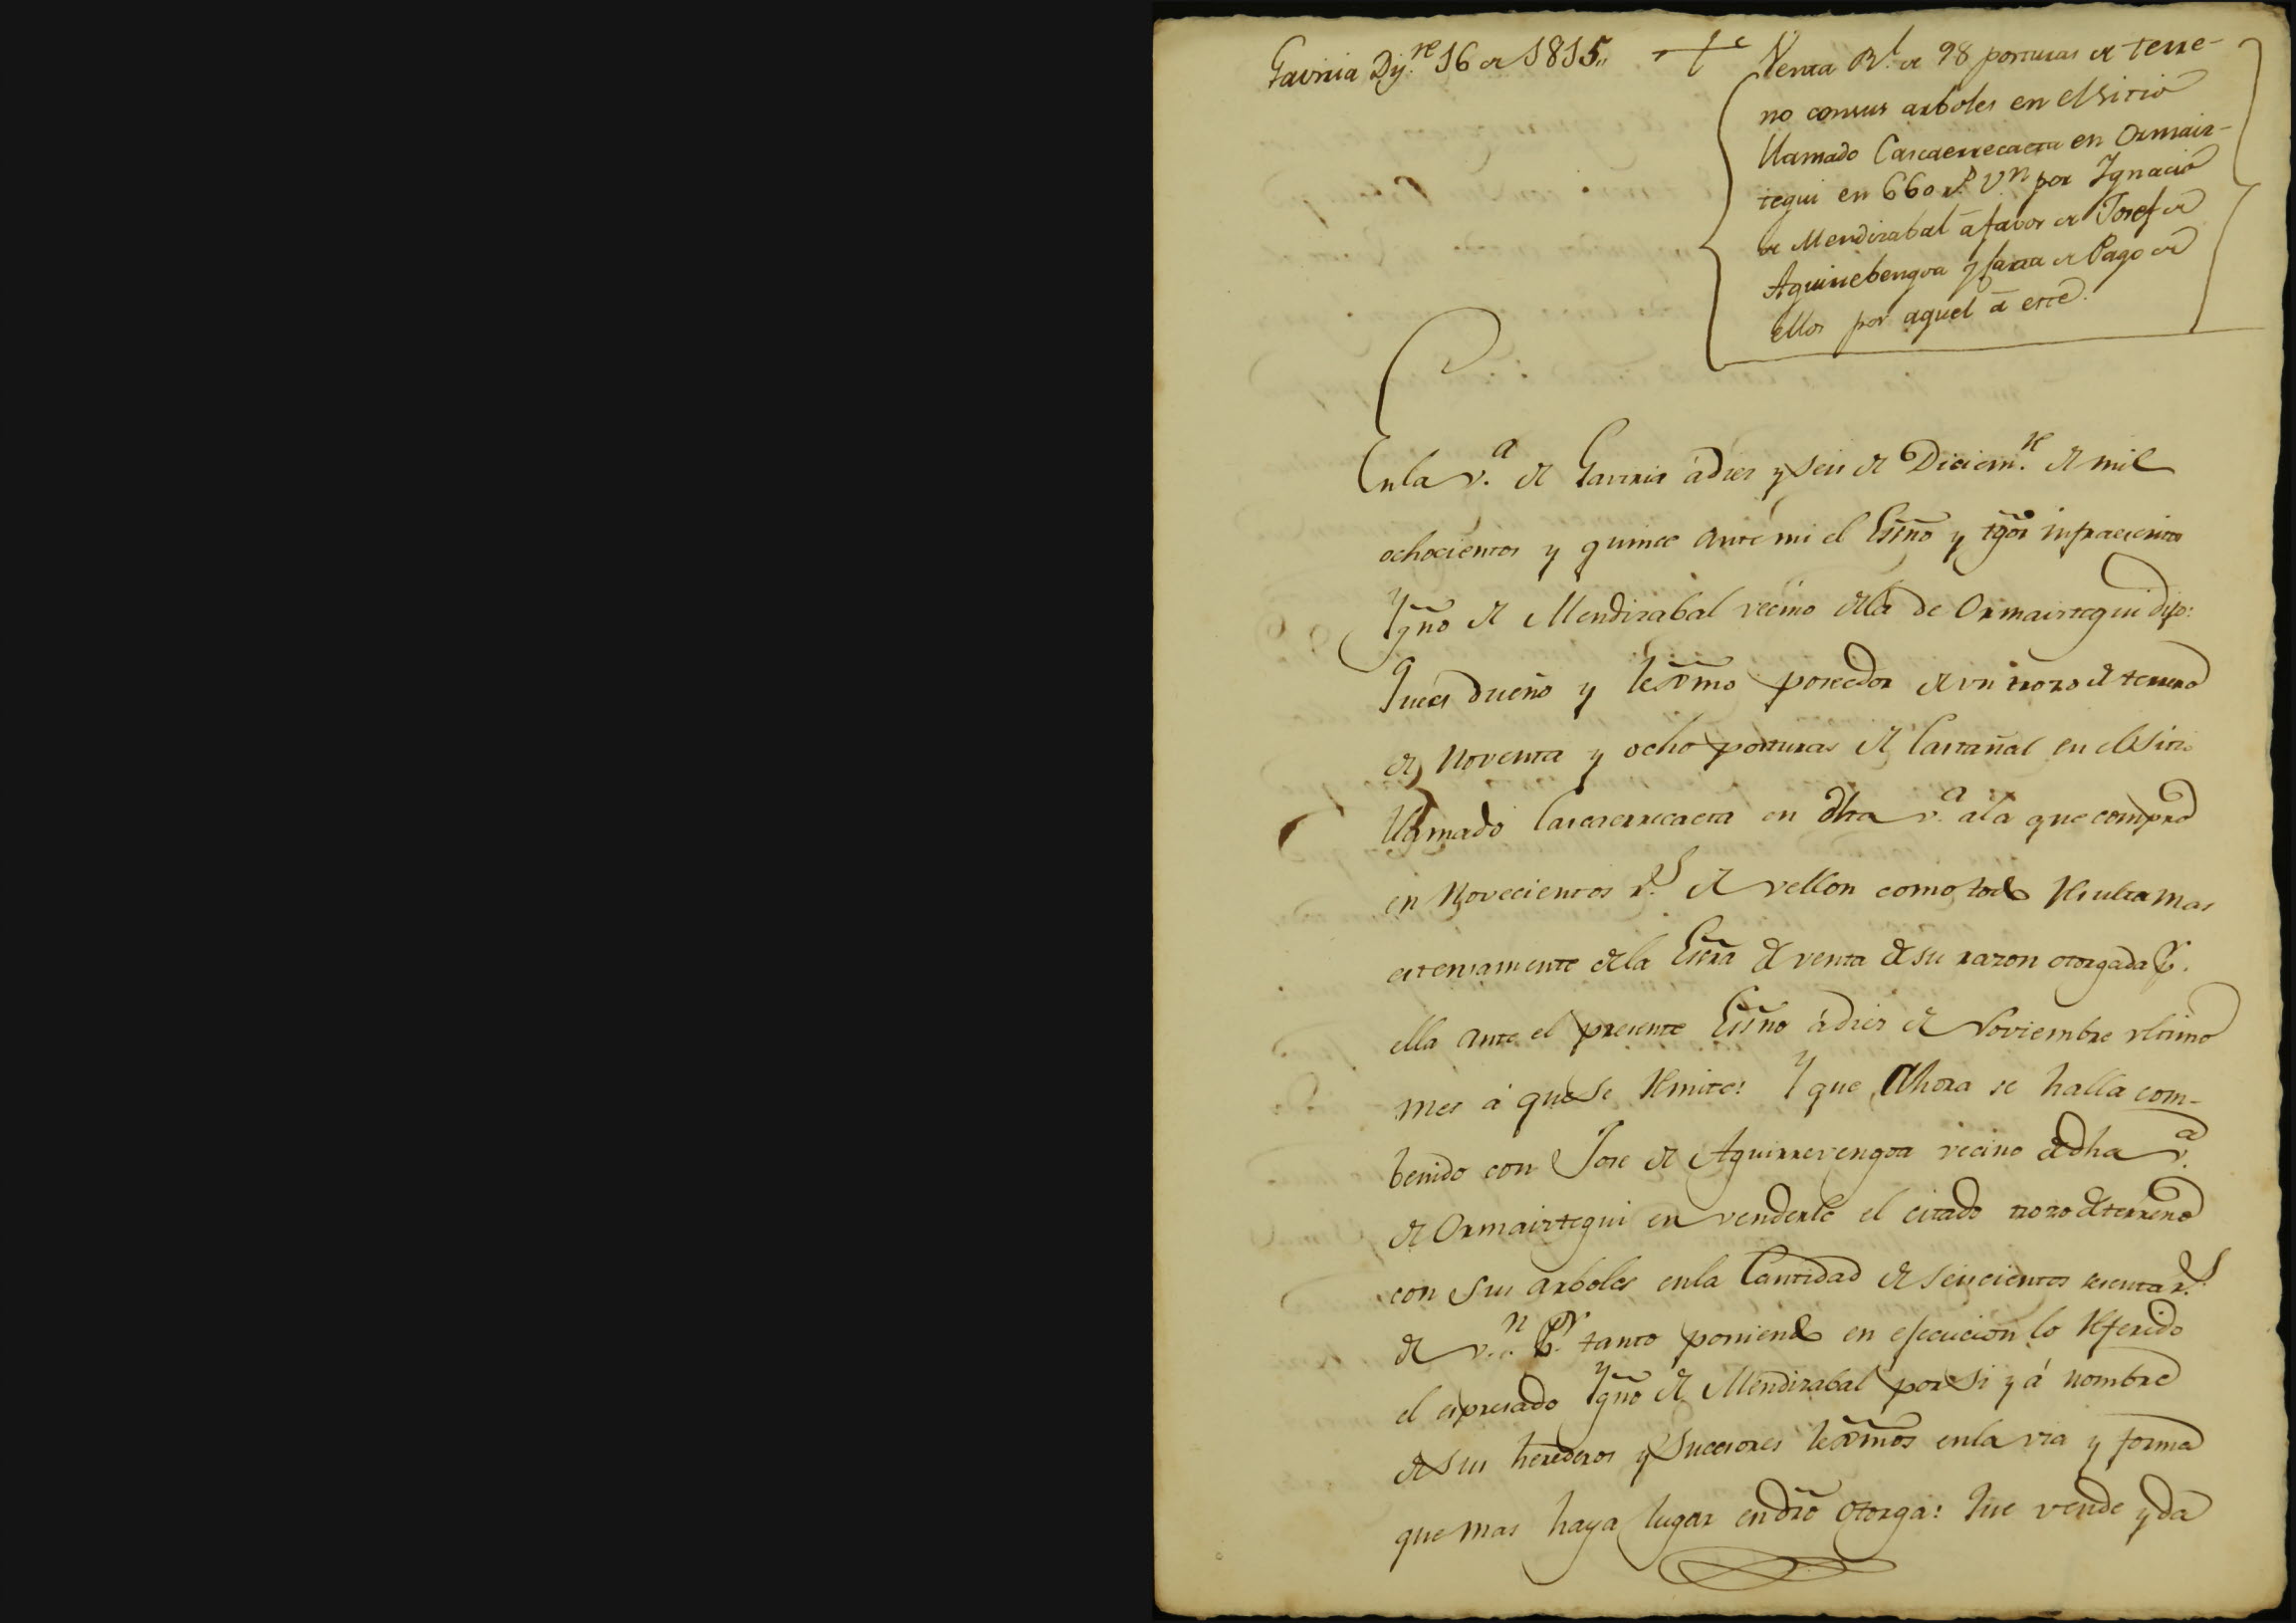 Gaviria Dij.re 16 de 1815,,
Venta Rl. de 98 posturas de terre-
no con sus arboles en el sitio
llamado Cascaerrecaeta en Ormaiz-
tegui en 660 rs. Vn por Ygnacio
de Mendizabal á favor de Josef de
Aguirrebengoa y carta de Pago de
ellos por aquel á este.
En la v.a de Gaviria á diez y seis de Diciem.re de mil
ochocientos y quince ante mi el Essno y tgos infraescritos
Ygno de Mendizabal vecino de la de Ormaiztegui dijo:
Que es dueño y lexmo poseedor de vn trozo de terreno
de Noventa y ocho posturas de Castañal en el sitio
llamado Cascaerrecaeta en dha v.a a la que compró
en Novecientos rs. de vellon como todo resulta mas
estensamente de la Escra de venta de su razon otorgada p.
ella ante el presente Essno á diez de Noviembre vltimo
mes á que se remite: Y que Ahora se halla com-
benido con Jose de Aguirrevengoa vecino de dha v.a
de Ormaiztegui en venderle el citado trozo de terreno
con sus arboles en la Cantidad de seiscientos sesenta rs.
de v.n P.r tanto poniendo en ejecucion lo referido
el espresado Ygno de Mendizabal por si y á nombre
de sus herederos y Succesores lexmos en la via y forma
que mas haya lugar en dro otorga: Que vende y da